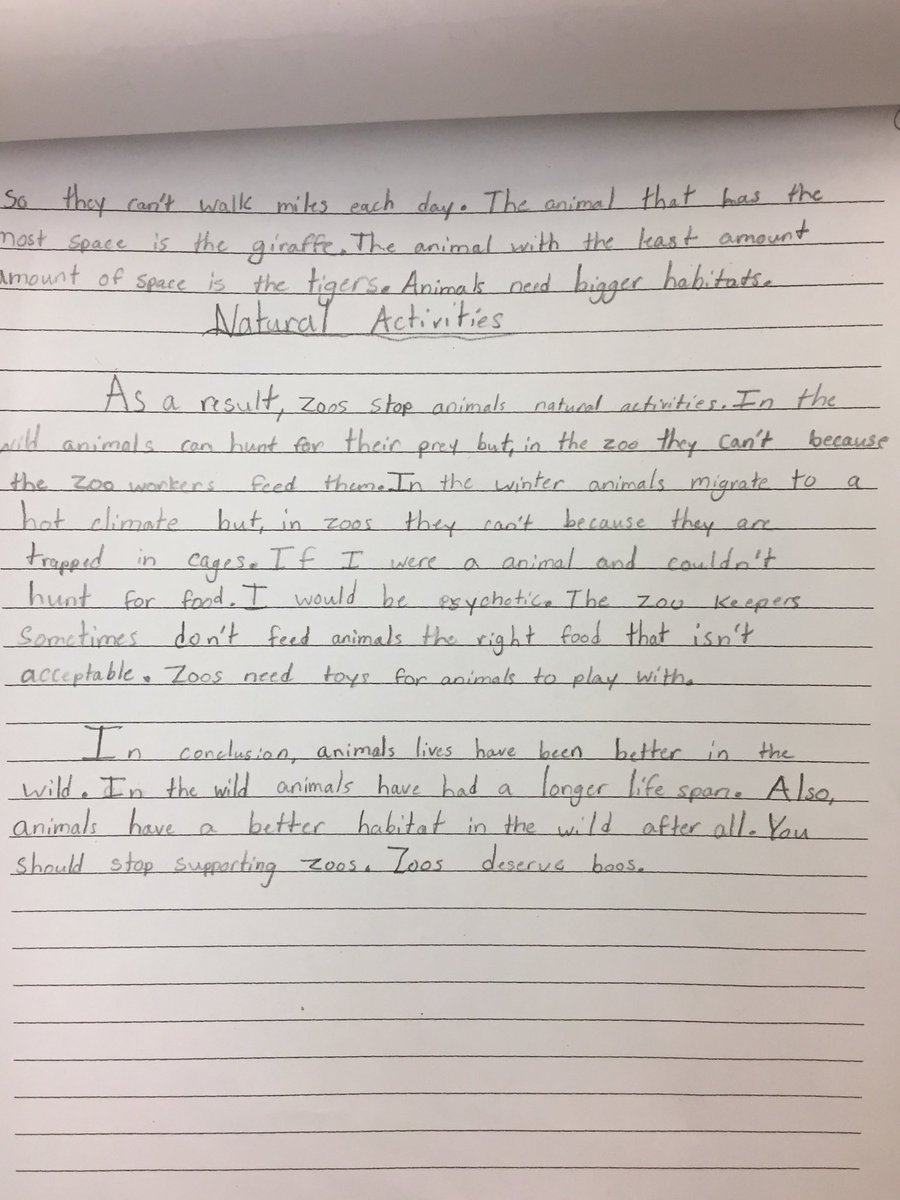 So they can't walk miles each day. The animal that has the
most space is the giraffe. The animal with the least amount
amount of space is the tigers. Animals need bigger habitats.
Natural Activities
As a result, zoos stop animals natural activities. In the
wild animals can hunt for their prey but, in the zoo they can't because
the zoo workers feed them. In the winter animals migrate to a
hot climate but, in zoos they can't because they are
trapped in cages. If I were a animal and couldn't
hunt for food. I would be psychotic. The zoo keepers
Sometimes don't feed animals the right food that isn't
acceptable. Zoos need toys for animals to play with.
In conclusion, animals lives have been better in the
wild. In the wild animals have had a longer life span. Also,
animals have a better habitat in the wild after all. You
should stop supporting zoos. Zoos deserve boos.